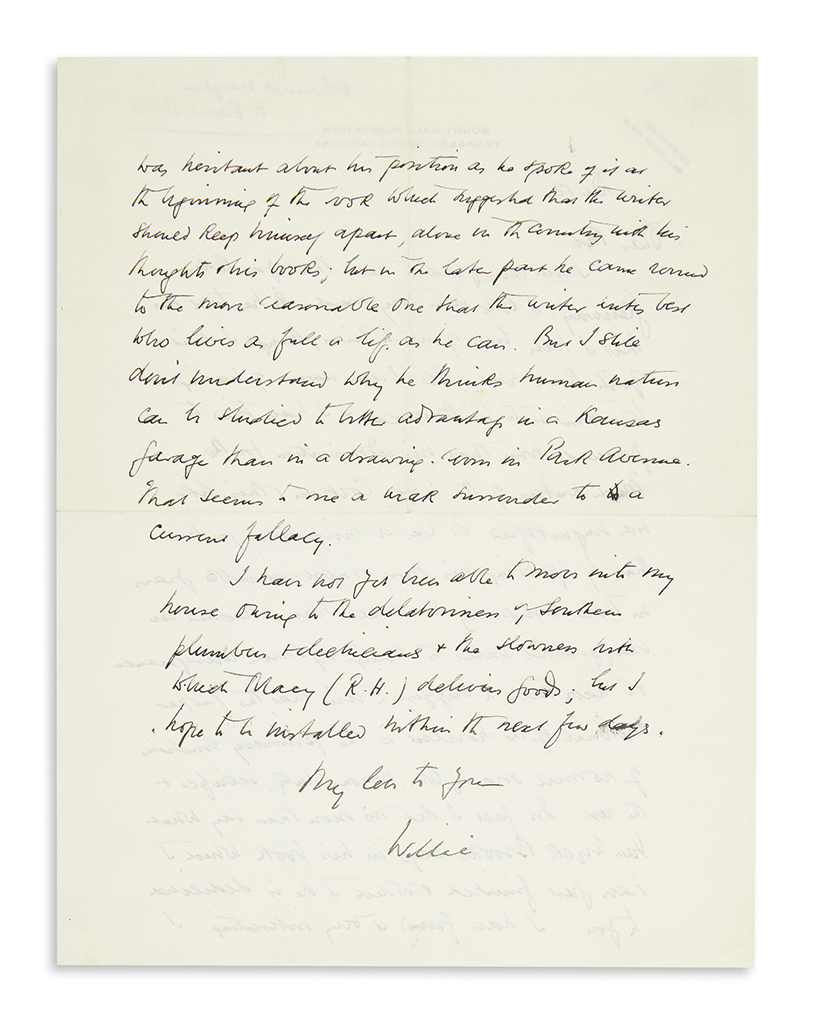 was hesitant about his position as he spoke of it as
the beginning of the book which suggested that the writer
should keep himself apart, alone in the country with his
thoughts & his books; but in the later part he came round
to the more reasonable one that the writer writes best
who lives as full a life as he can. But I still
don't understand why he thinks human nature
can be studied to better advantage in a Kansas
garage than in a drawing-room in Park Avenue.
That seems to me a weak surrender to a
current fallacy.
I have not yet been able to move into my
house owing to the delatoriness of Southern
plumbers & electricians & the slowness with
which Macy (R.H.) delivers goods; but I
hope to be installed within the next few days.
My love to you
Willie